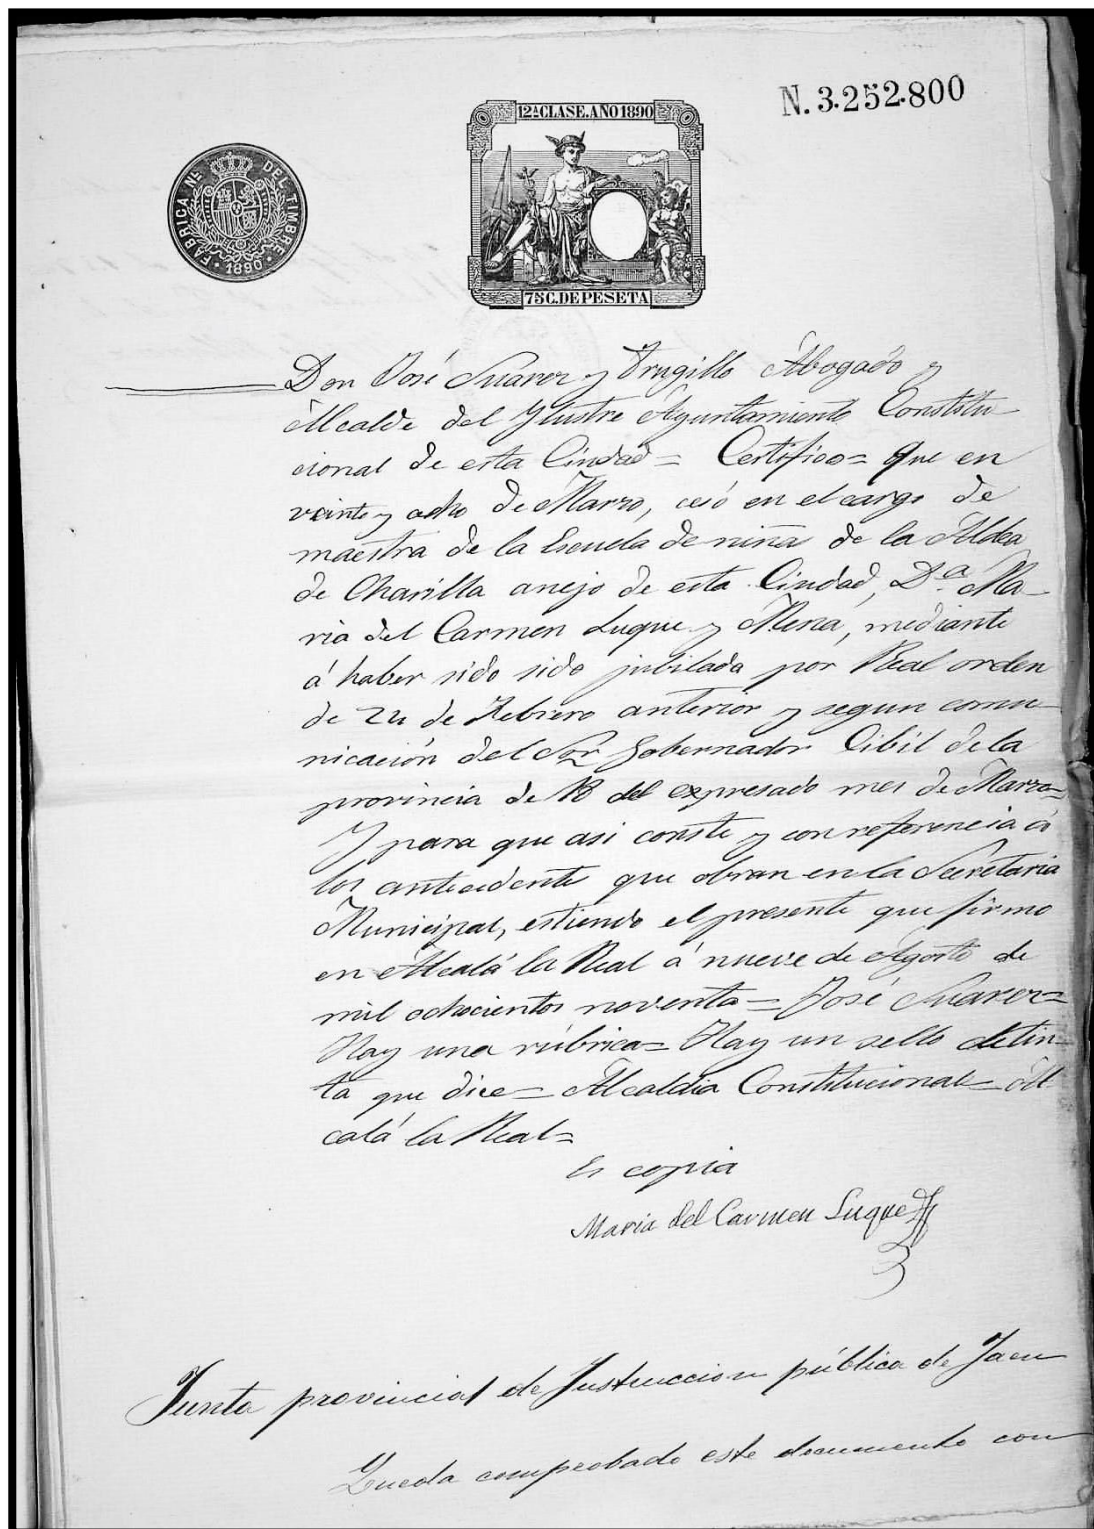 N. 3.252.800
12ª CLASE. AÑO 1890
FABRICA Nᴸ DEL TIMBRE
· 1890 ·
75 C. DE PESETA
Don José Suarez y Trugillo Abogado y
Alcalde del Ylustre Ayuntamiento Constitu-
cional de esta Ciudad = Certifico = que en
veinte y ocho de Marzo, cesó en el cargo de
maestra de la Escuela de niña de la Aldea
de Charilla anejo de esta Ciudad, D.ª Ma-
ria del Carmen Luque y Mena, mediante
á haber sido sido jubilada por Real orden
de 24 de Febrero anterior y segun comu-
nicación del Sor Gobernador Cibil de la
provincia de 18 del expresado mes de Marzo=
Y para que asi conste y con referencia á
los antecedente que obran en la Secretaria
Municipal, estiendo el presente que firmo
en Alcalá la Real á nueve de Agosto de
mil ochocientos noventa = José Suarez =
Hay una rúbrica = Hay un sello de tin-
ta que dice = Alcaldia Constitucional = Al
calá la Real =
Es copia
Maria del Carmen Luque
Junta provincial de Instruccion pública de Jaen
Queda comprobado este documento con